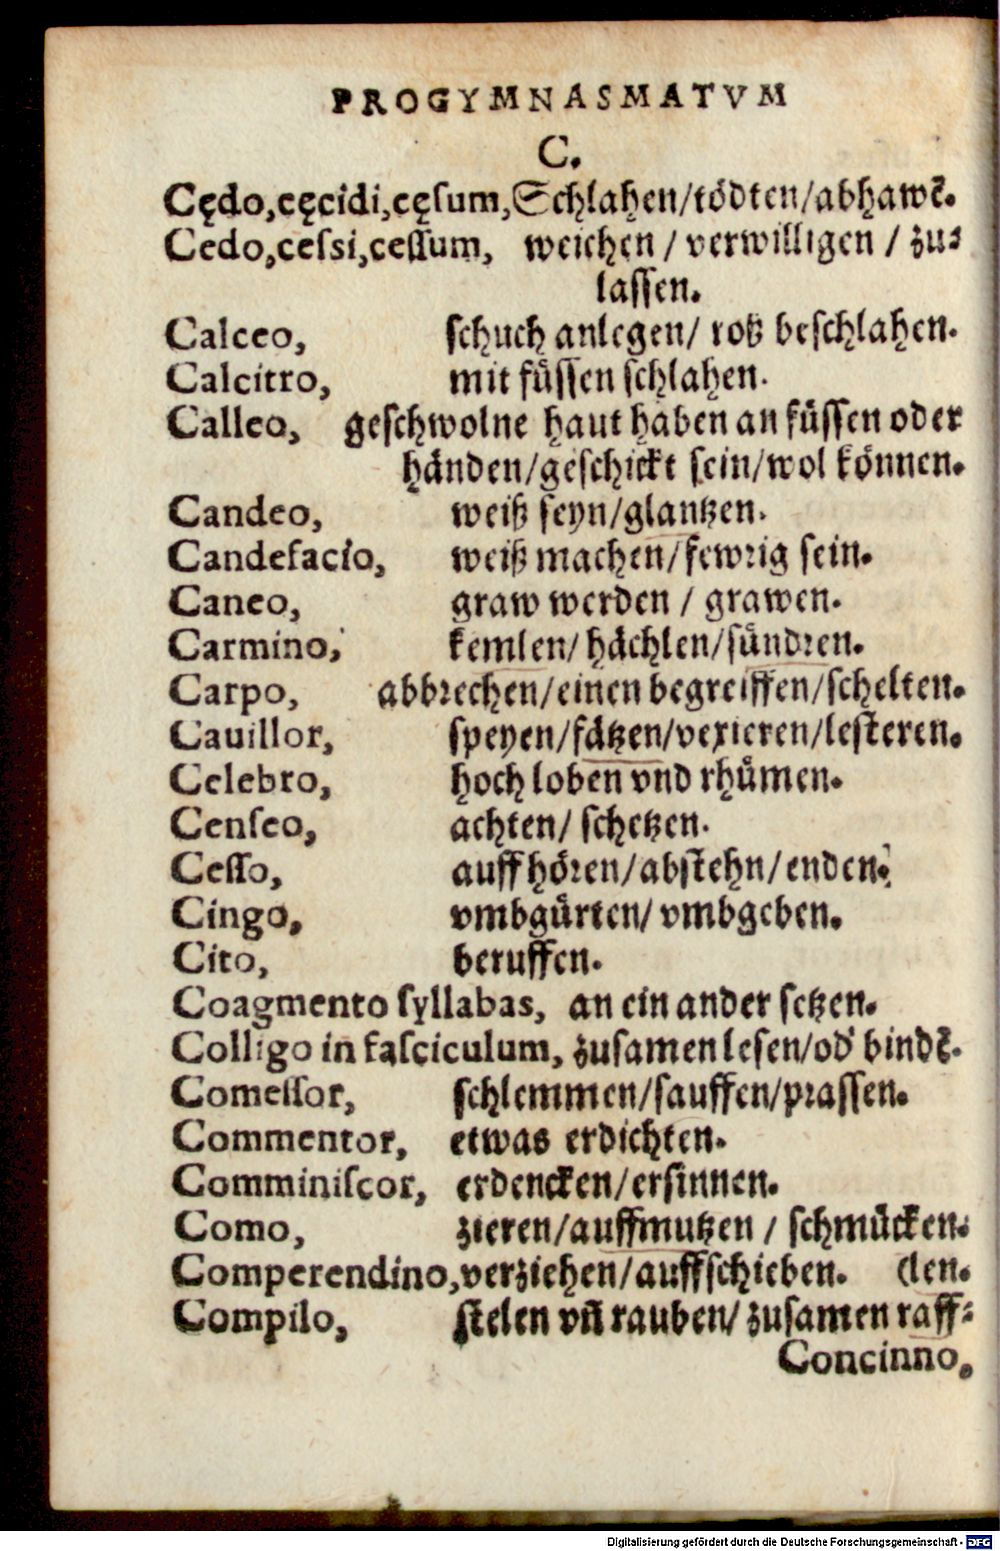 PROGYMNASMATVM
C.
Cędo, cęcîdi, cęsum, Schlahen/tödten/abhawẽ.
Cedo, cessi, cessum, weichen / verwilligen / zu-
lassen.
Calceo, schuch anlegen/ roß beschlahen.
Calcitro, mit füssen schlahen.
Calleo, geschwolne haut haben an füssen oder
händen/geschickt sein/wol können.
Candeo, weiß seyn/glantzen.
Candefacîo, weiß machen/fewrig sein.
Caneo, graw werden / grawen.
Carmino, kemlen/ hächlen/sündren.
Carpo, abbrechen/einen begreiffen/schelten.
Cauillor, speyen/fätzen/vexieren/lesteren.
Celebro, hoch loben vnd rhümen.
Censeo, achten/ schetzen.
Cesso, auffhören/abstehn/enden.
Cingo, vmbgürten/ vmbgeben.
Cito, beruffen.
Coagmento syllabas, an ein ander setzen.
Colligo in fasciculum, zusamen lesen/od' bindẽ.
Comessor, schlemmen/sauffen/prassen.
Commentor, etwas erdichten.
Comminiscor, erdencken/ersinnen.
Como, zieren/auffmutzen / schmücken.
Comperendino, verziehen/auffschieben. (len.
Compilo, stelen vñ rauben/ zusamen raff-
Concinno,
Digitalisierung gefördert durch die Deutsche Forschungsgemeinschaft - DFG